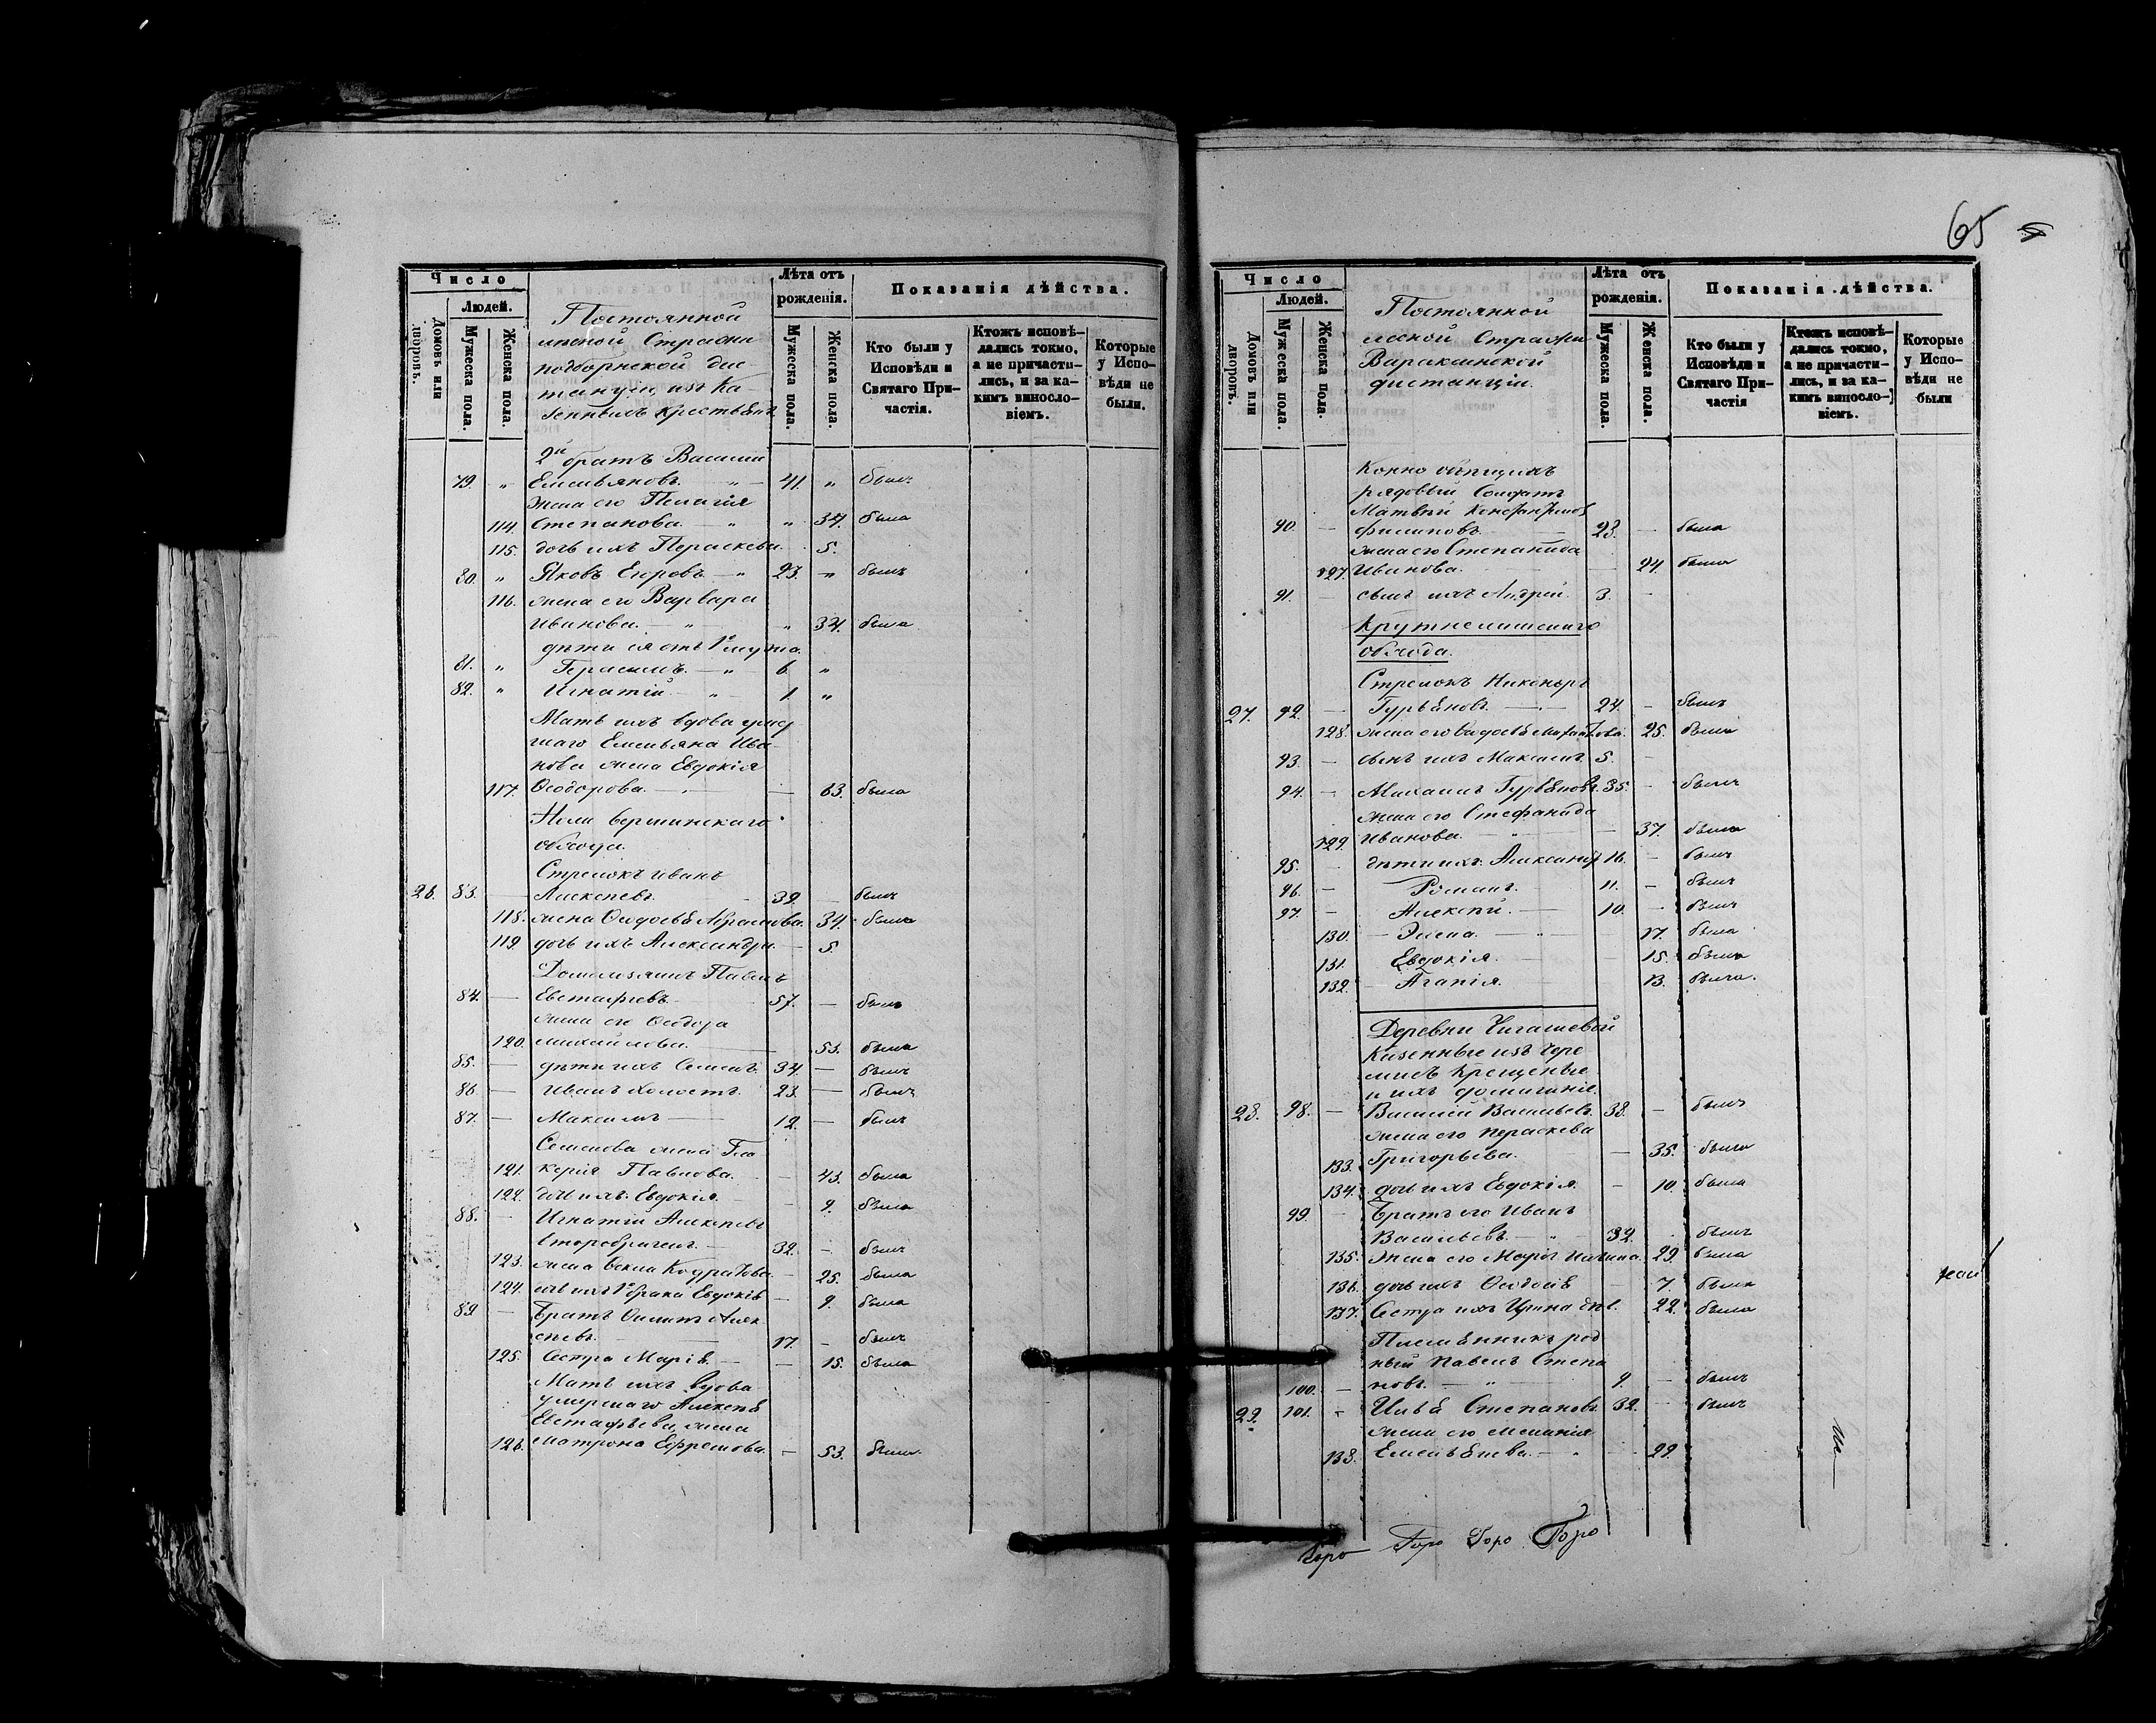 Число
Людей.
Домовъ или дворовъ.
Мужеска пола.
Женска пола.
Постоянной
лесной Стражи
подборнской дис
танціи, изъ Ка-
зенныхъ крестьянъ
Лѣта отъ
рожденія.
Мужеска пола.
Женска пола.
Показанія дѣйства.
Кто были у
Исповѣди и
Святаго При-
частія.
Ктожъ исповѣ-
дались токмо,
а не причасти-
лись, и за ка-
кимъ виносло-
віемъ.
Которые
у Испо-
вѣди не
были.
2й братъ Василій
79. " Емельяновъ. " 41. " былъ
жена его Пелагія
114. Степанова. " " 37. была
115. дочь ихъ Пераскева. 5.
80. " Яковъ Егоровъ " 23. " былъ
116. жена его Варвара
Иванова. " " 34. была
дѣти ея отъ 1го мужа.
81. " Герасимъ. " 6 "
82. " Игнатій " 1. "
Мать ихъ вдова умер
шаго Емельяна Ива-
нова жена Евдокія
117. Ѳеодорова. — 63. была
вершинскаго
обхода.
Стрелокъ Иванъ
26. 83. — Алексѣевъ. 39. былъ
118. жена Ѳедосьѣ Абрамова. 34. была
119. дочь ихъ Александра — 5.
Павелъ
84. — Евстафіевъ. 57. — былъ
жена его Ѳеодора
120. михайлова. 53. была
85. — дѣти ихъ Семенъ. 34. — былъ
86. — Иванъ холостъ. 23. — былъ
87. — Максимъ — 12. — былъ
Семенова жена Гли
121. керія Павлова. — 43. была
122. дочь ихъ Евдокія — 9. была
88. — Игнатій Алексѣевъ
вторбраченъ — 32. — былъ
123. жена Кодратова. — 25. была
124. дочь ихъ 1го брака Евдокія — 9. была
89 — Братъ Филипъ Алек
сѣевъ. 17. — былъ
125. Сестра Марія. — — 15. была
Мать ихъ вдова
умершаго Алексѣя
Евстафьева жена
126. Матрона Ефремова. — 53. была
65
Число
Людей.
Домовъ или дворовъ.
Мужеска пола.
Женска пола.
Постоянной
лесной Стражи
Вараксинской
дистанціи.
Лѣта отъ
рожденія.
Мужеска пола.
Женска пола.
Показанія дѣйства.
Кто были у
Исповѣди и
Святаго При-
частія
Ктожъ исповѣ-
дались токмо,
а не причасти-
лись, и за ка-
кимъ винословіемъ.
Которые
у Испо-
вѣди не
были
Конно
рядовый Солдатъ
Матвѣй Константинов
90. — Филиповъ 23. — была
жена его Степанида
127. Иванова. — 24. была
91. — сынъ ихъ Андрей. 3. —
обхода.
Стрелокъ Никифоръ
27. 92. — Гурьяновъ. — 24. — былъ
128. жена его Ѳедосьѣ 25. была
93. — сынъ ихъ Максимъ 5. —
94. — Михаилъ Гурьяновъ. 35. — былъ
жена его Стефанида
129. Иванова. — " — 37. была
95. — дѣти ихъ Александръ 16. — былъ
96. — Романъ. 11. — былъ
97. — Алексѣй. — 10. — былъ
130. — Елена. — 17. была
131. Евдокія. — 15. была
132. — Агапія. 13. была.
Деревни Чигашевой
Казенные изъ чере
мисъ Крещеные
и ихъ домашніе.
28. 98. — Василій Васильевъ 38. — былъ
жена его Пераскева
133. Григорьева. — 35. была
134. дочь ихъ Евдокія. — 10. была
99. — Братъ его Иванъ
Васильевъ. — " 32. . былъ
135. Жена его 29. была
136. дочь ихъ Ѳедосія — 7. была
137. Сестра ихъ Ирина дѣв. 22. была
Племянникъ род
ный Павелъ Степа
100. — новъ. — " 9. — былъ
29. 101. — Илья Степановъ 32. — былъ
жена его Меланія
138. Емельянова. — " 29.
Горо Горо Горо Горо